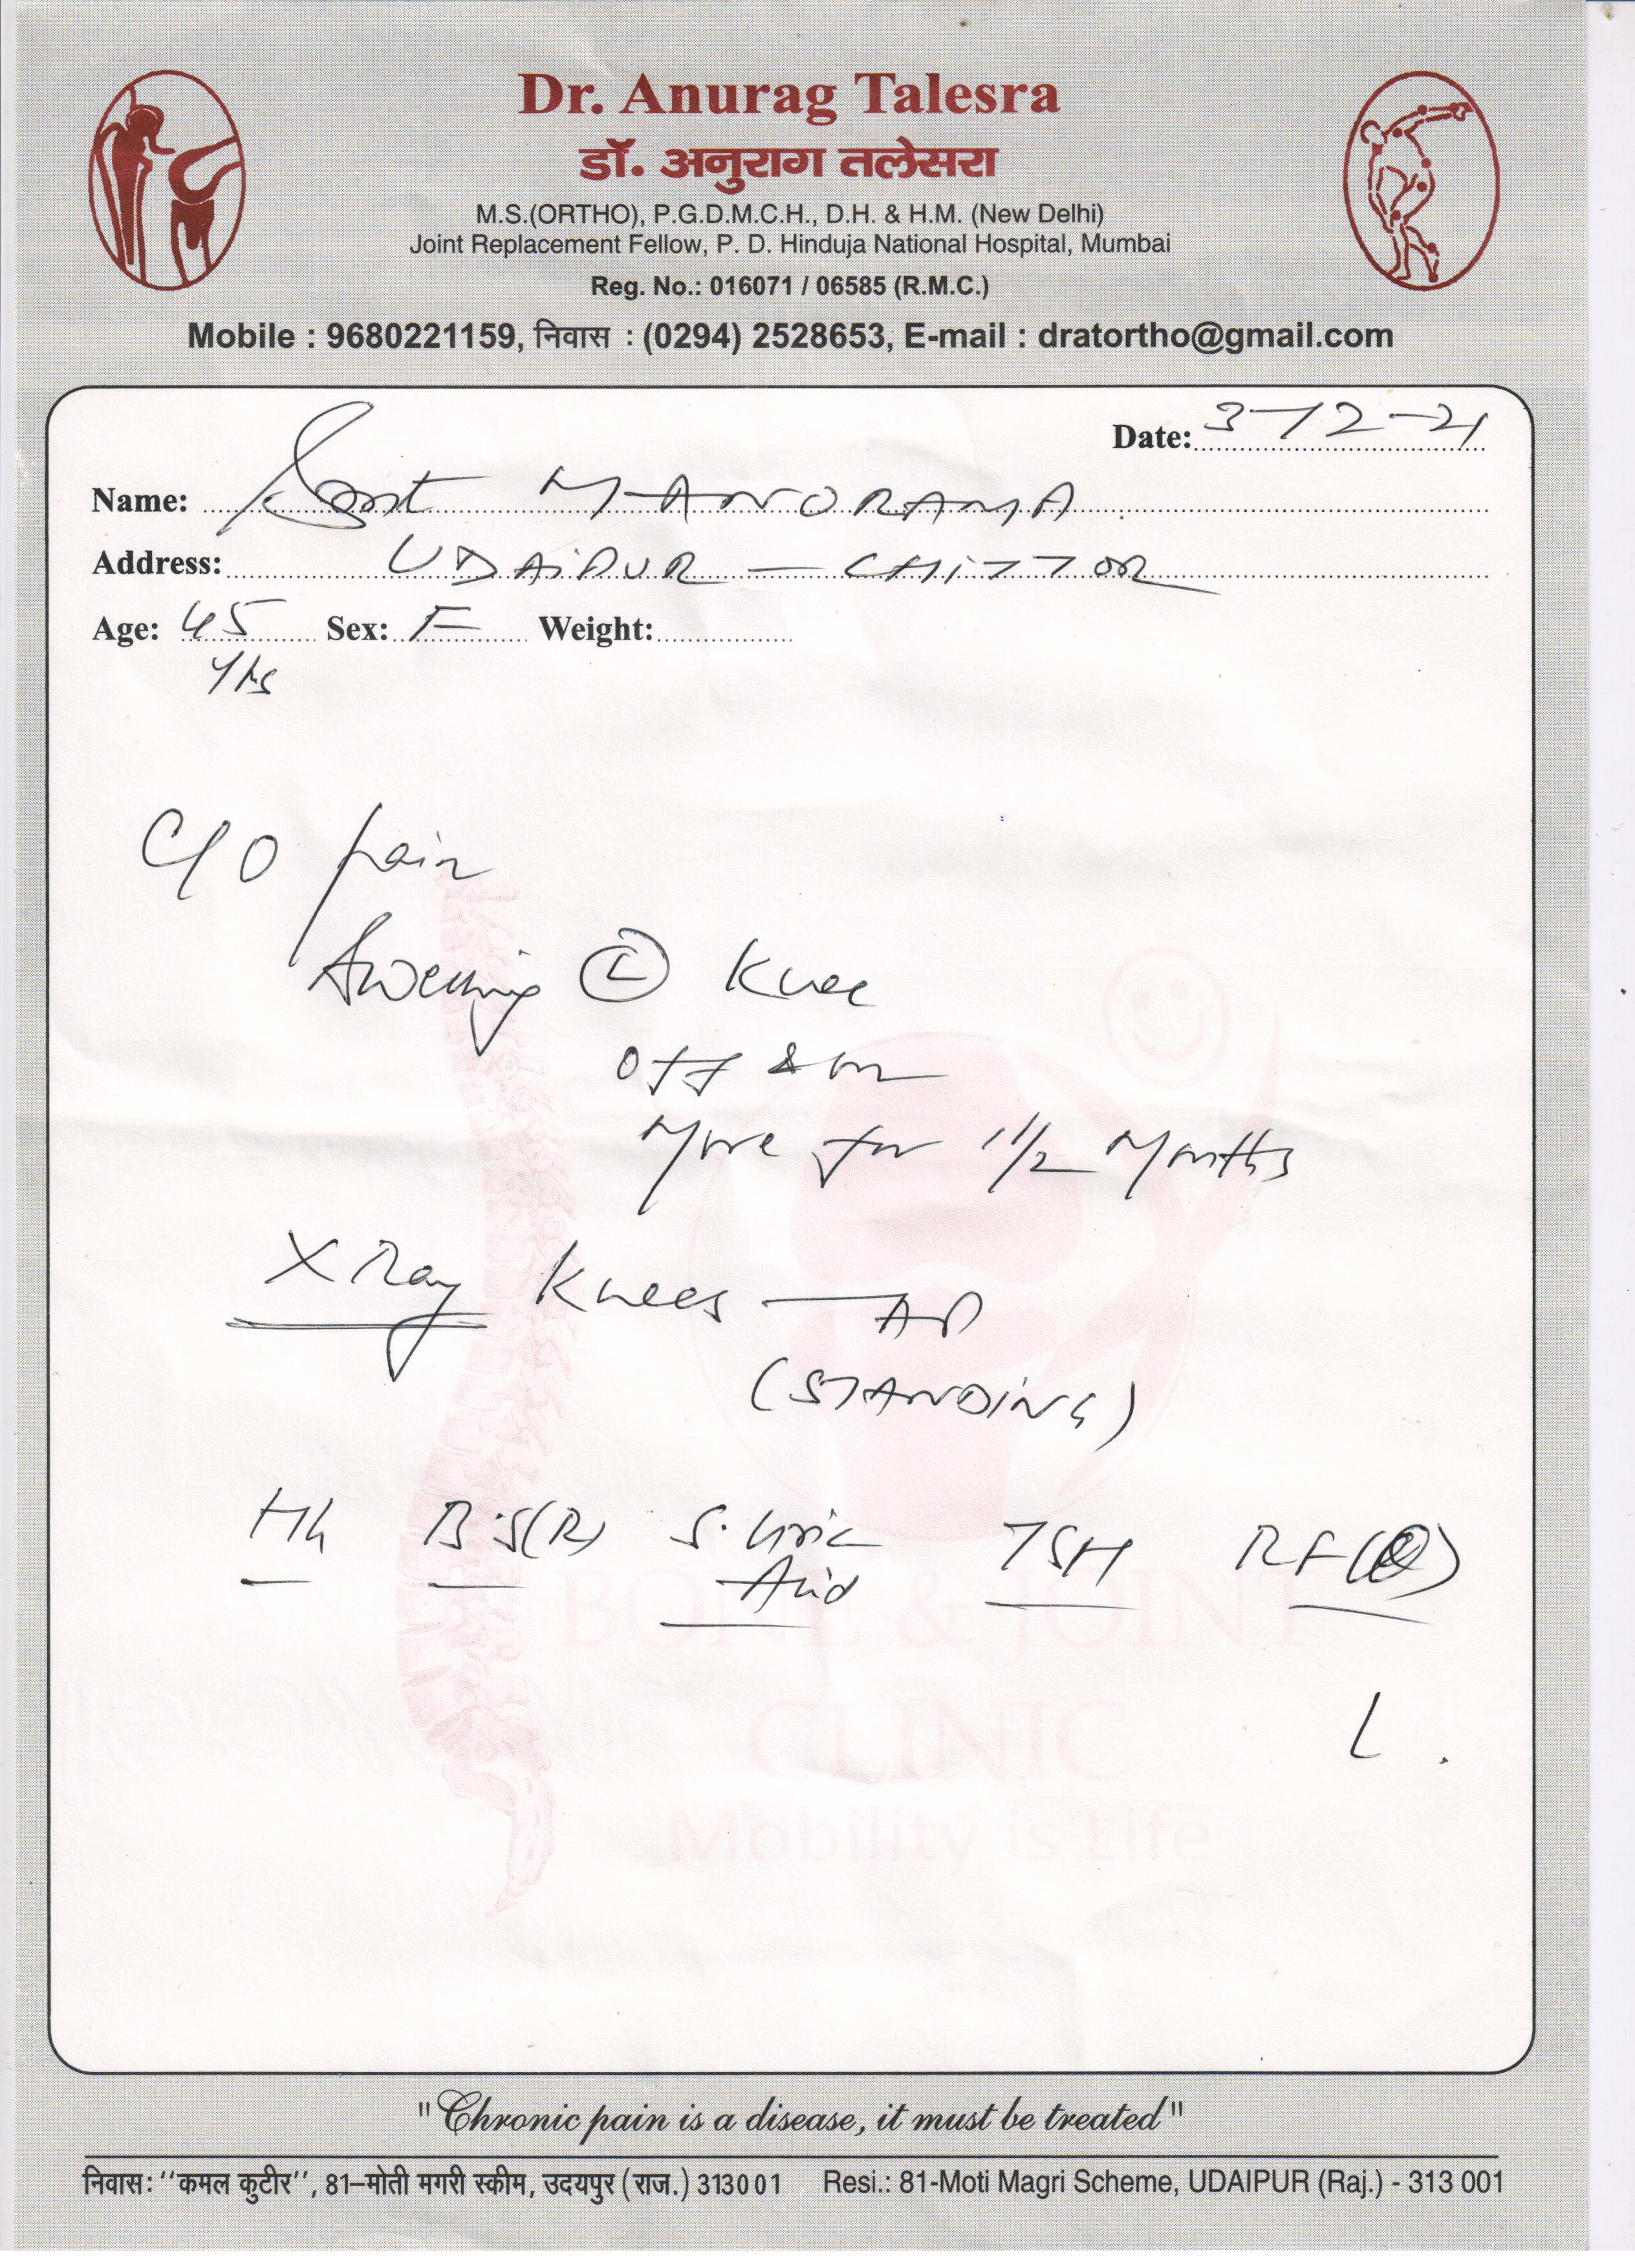 Dr. Anurag Talesra
डॉ. अनुराग तलेसरा
M.S.(ORTHO), P.G.D.M.C.H., D.H. & H.M. (New Delhi)
Joint Replacement Fellow, P. D. Hinduja National Hospital, Mumbai
Reg. No.: 016071 / 06585 (R.M.C.)
Mobile : 9680221159, निवास : (0294) 2528653, E-mail : dratortho@gmail.com
Date: 3-12-21
Name: Smt MANORAMA
Address: UDAIPUR - CHITTOR
Age: 45 Sex: F Weight:
Yrs
C/O pain
Swelling (L) Knee
Off & on
More for 1 1/2 Months
X Ray Knees - AP
(STANDING)
Hb B.S(R) S. Uric TSH RF(Q)
Acid
BONE & JOINT
CLINIC
Mobility is Life
"Chronic pain is a disease, it must be treated"
निवास: ''कमल कुटीर'', 81–मोती मगरी स्कीम, उदयपुर (राज.) 313001 Resi.: 81-Moti Magri Scheme, UDAIPUR (Raj.) - 313 001